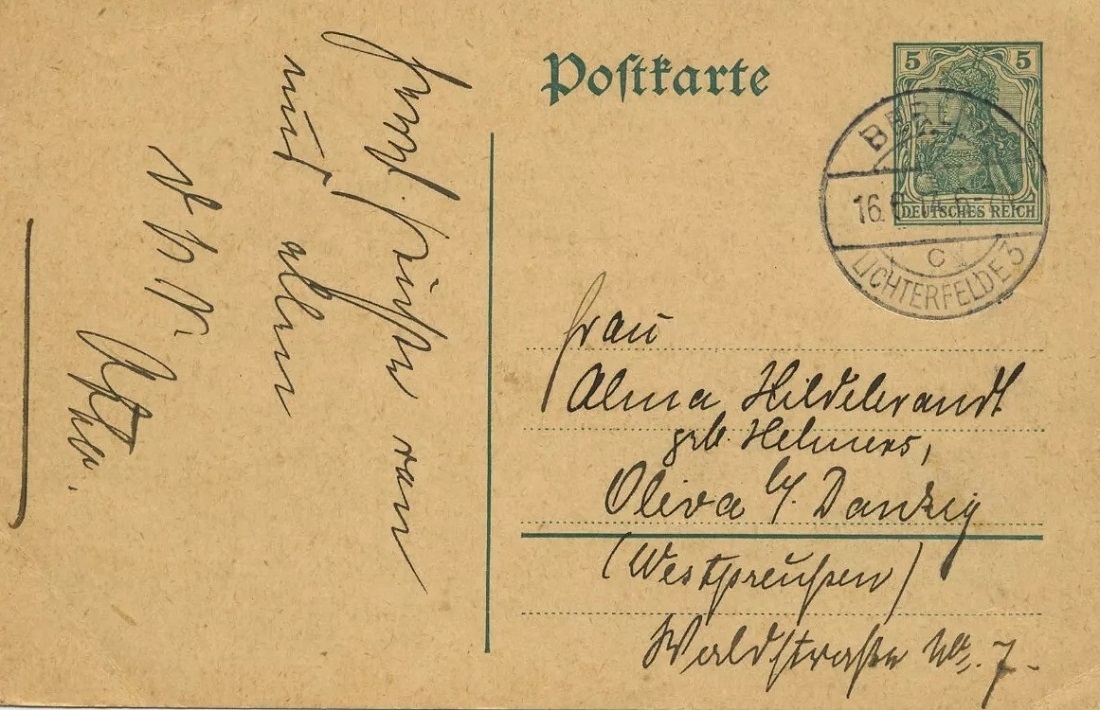 Postkarte
5 5
DEUTSCHES REICH
BERLIN
16. 6-7N
c
LICHTERFELDE 5
Frau
Alma Hildebrandt
geb. Helmers,
Oliva b/. Danzig
(Westpreußen)
Waldstraße No. 7.
Herzl. Grüße von
uns allen